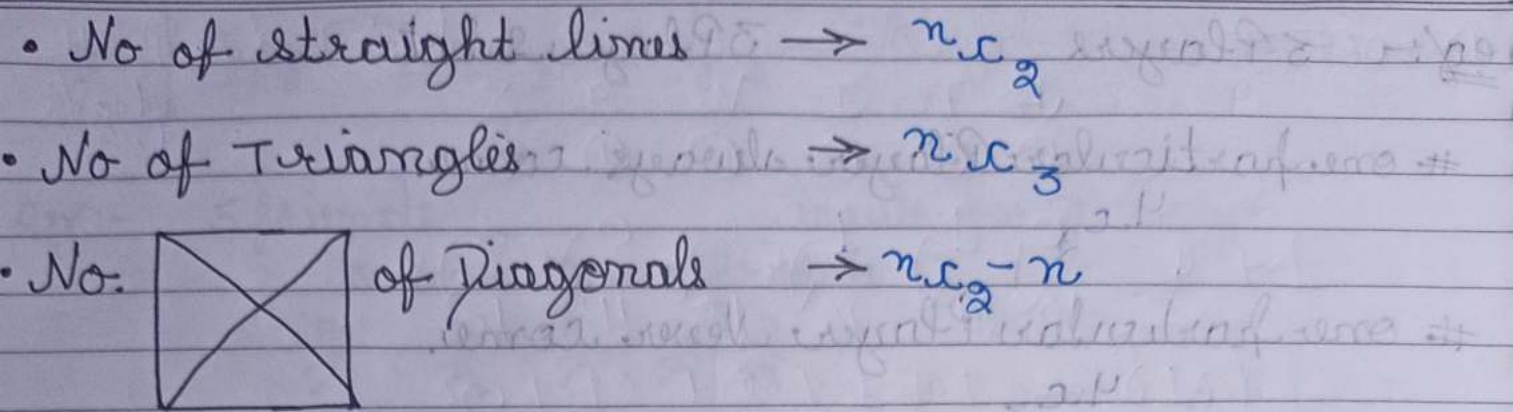 • No of straight lines → ⁿc₂
• No of Triangles → ⁿc₃
• No. of Diagonals → ⁿc₂ - n